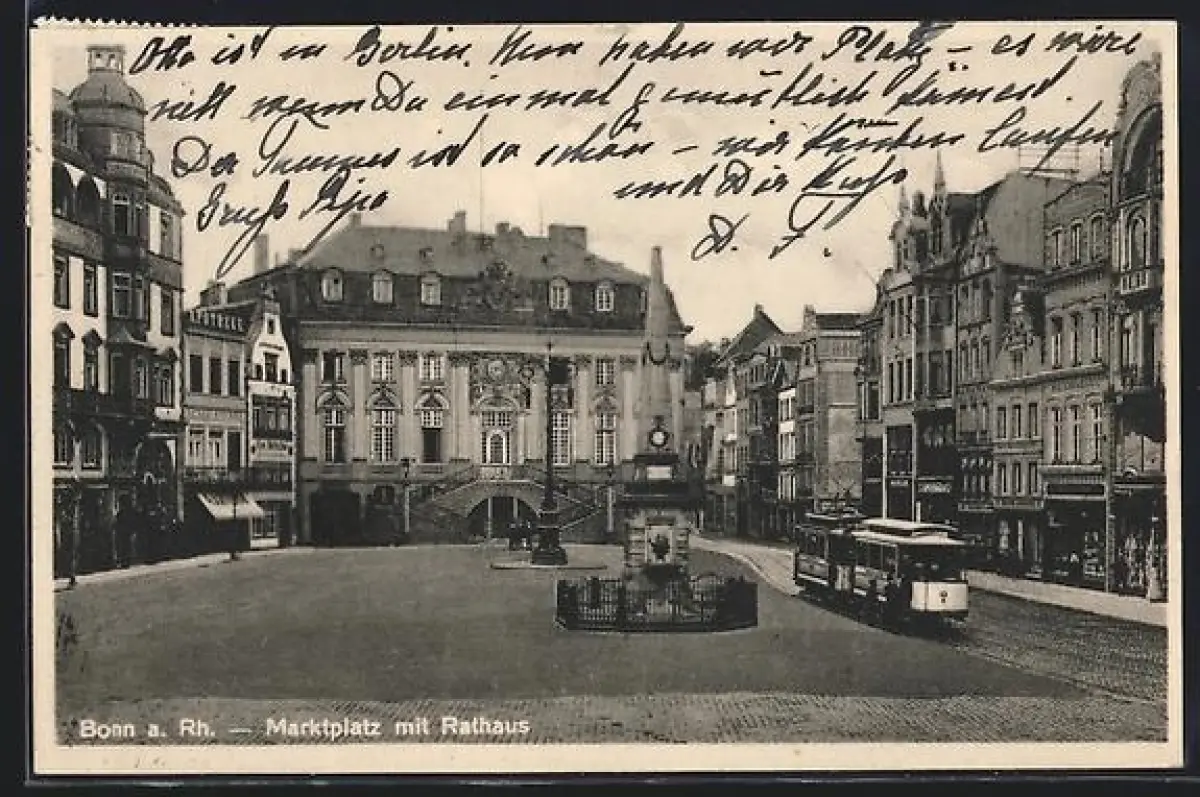 Otto ist in Berlin. Nun haben wir Platz – es wäre
nett wenn Du einmal gemütlich kämest.
Der Sommer ist so schön – wir könnten laufen
Gruß
und Dir Kuß
D. F.
Bonn a. Rh. — Marktplatz mit Rathaus